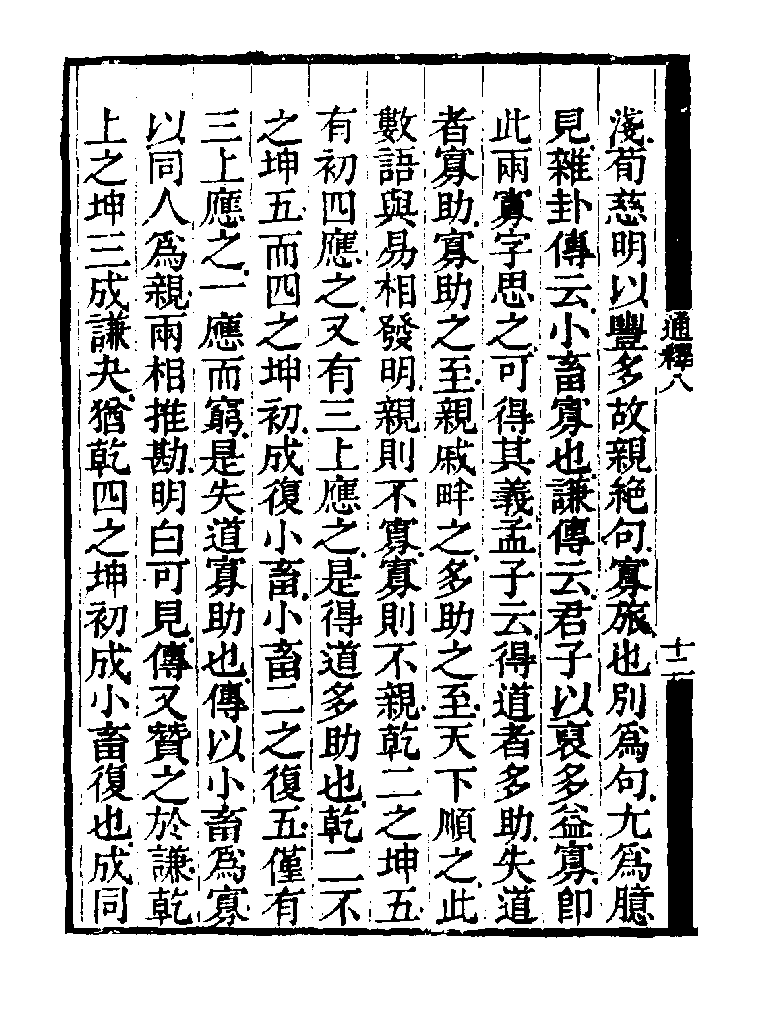 淺荀慈明以豐多故親絶句寡旅也別爲句尢爲臆
見雜卦傳云小畜寡也謙傳云君子以裒多益寡卽
此兩寡字思之可得其義孟子云得道者多助失道
者寡助寡助之至親戚畔之多助之至天下順之此
數語與易相發明親則不寡寡則不親乾二之坤五
有初四應之又有三上應之是得道多助也乾二不
之坤五而四之坤初成復小畜小畜二之復五僅有
三上應之一應而窮是失道寡助也傳以小畜爲寡
以同人爲親兩相推勘明白可見傳又贊之於謙乾
上之坤三成謙夬猶乾四之坤初成小畜復也成同
通釋八
十二